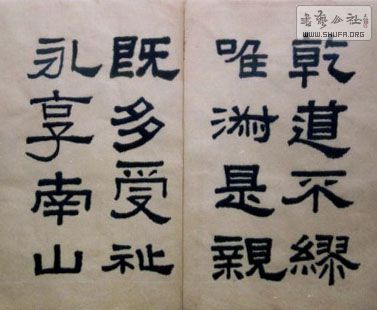 乾道不繆
唯淑是親
既多受祉
永享南山
WWW.SHUFA.ORG